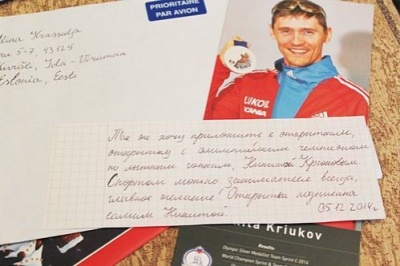 PRIORITAIRE
PAR AVION
5-7, 43125
Ida-Virumaa
Estonia, Eesti
LUKOIL
SCANIA
Так же хочу приложить к открыткам,
открытку с олимпийским чемпионом
по лыжным гонкам, Никитой Крюковым.
Спортом можно заниматься всегда,
главное желание! Открытка подписана
самим Никитой. 05.12.2014г.
Kriukov
Results:
Olympic Silver Medallist Team Sprint C 2014
World Champion Sprint & Team